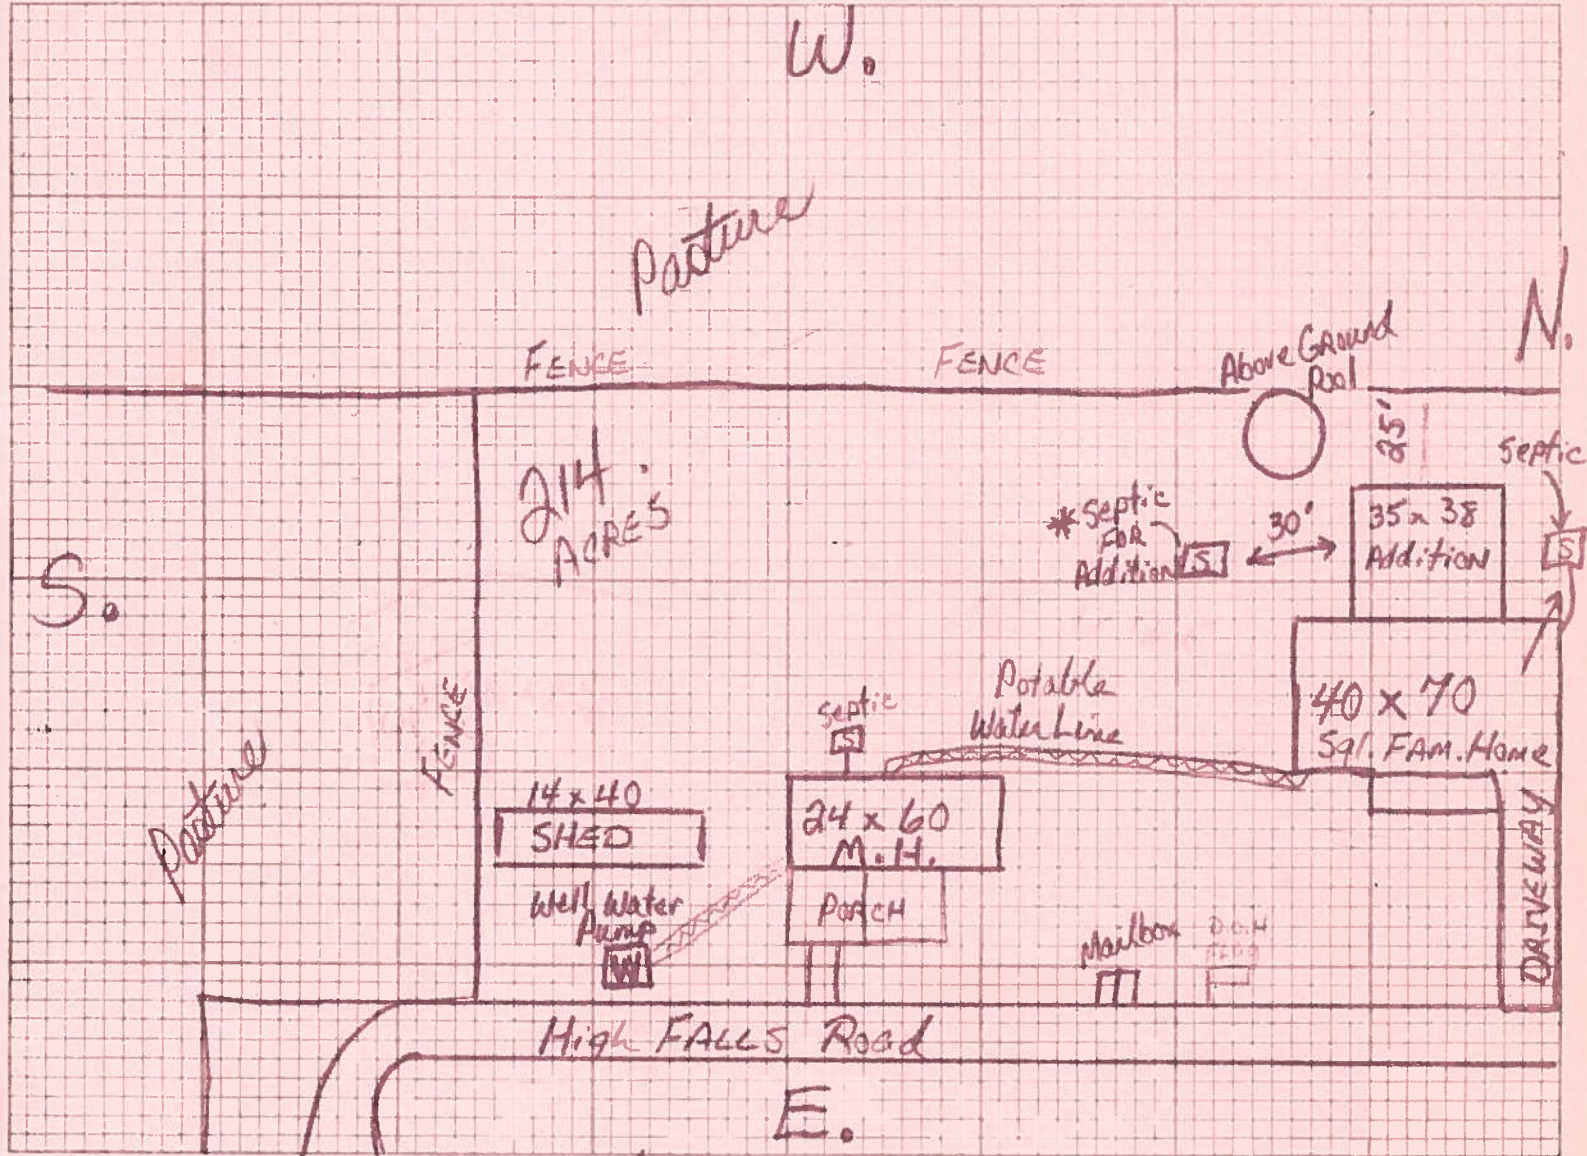 W.
Pasture
N.
FENCE
FENCE
Above Ground
Pool
25'
Septic
S
214
ACRES
* Septic
FOR
Addition
S
30'
35 x 38
Addition
S.
FENCE
Pasture
Septic
S
Potable
Water Line
40 x 70
Sgl. FAM. Home
14 x 40
SHED
24 x 60
M.H.
PORCH
Well Water
Pump
W
Mailbox
DRIVEWAY
High FALLS Road
E.